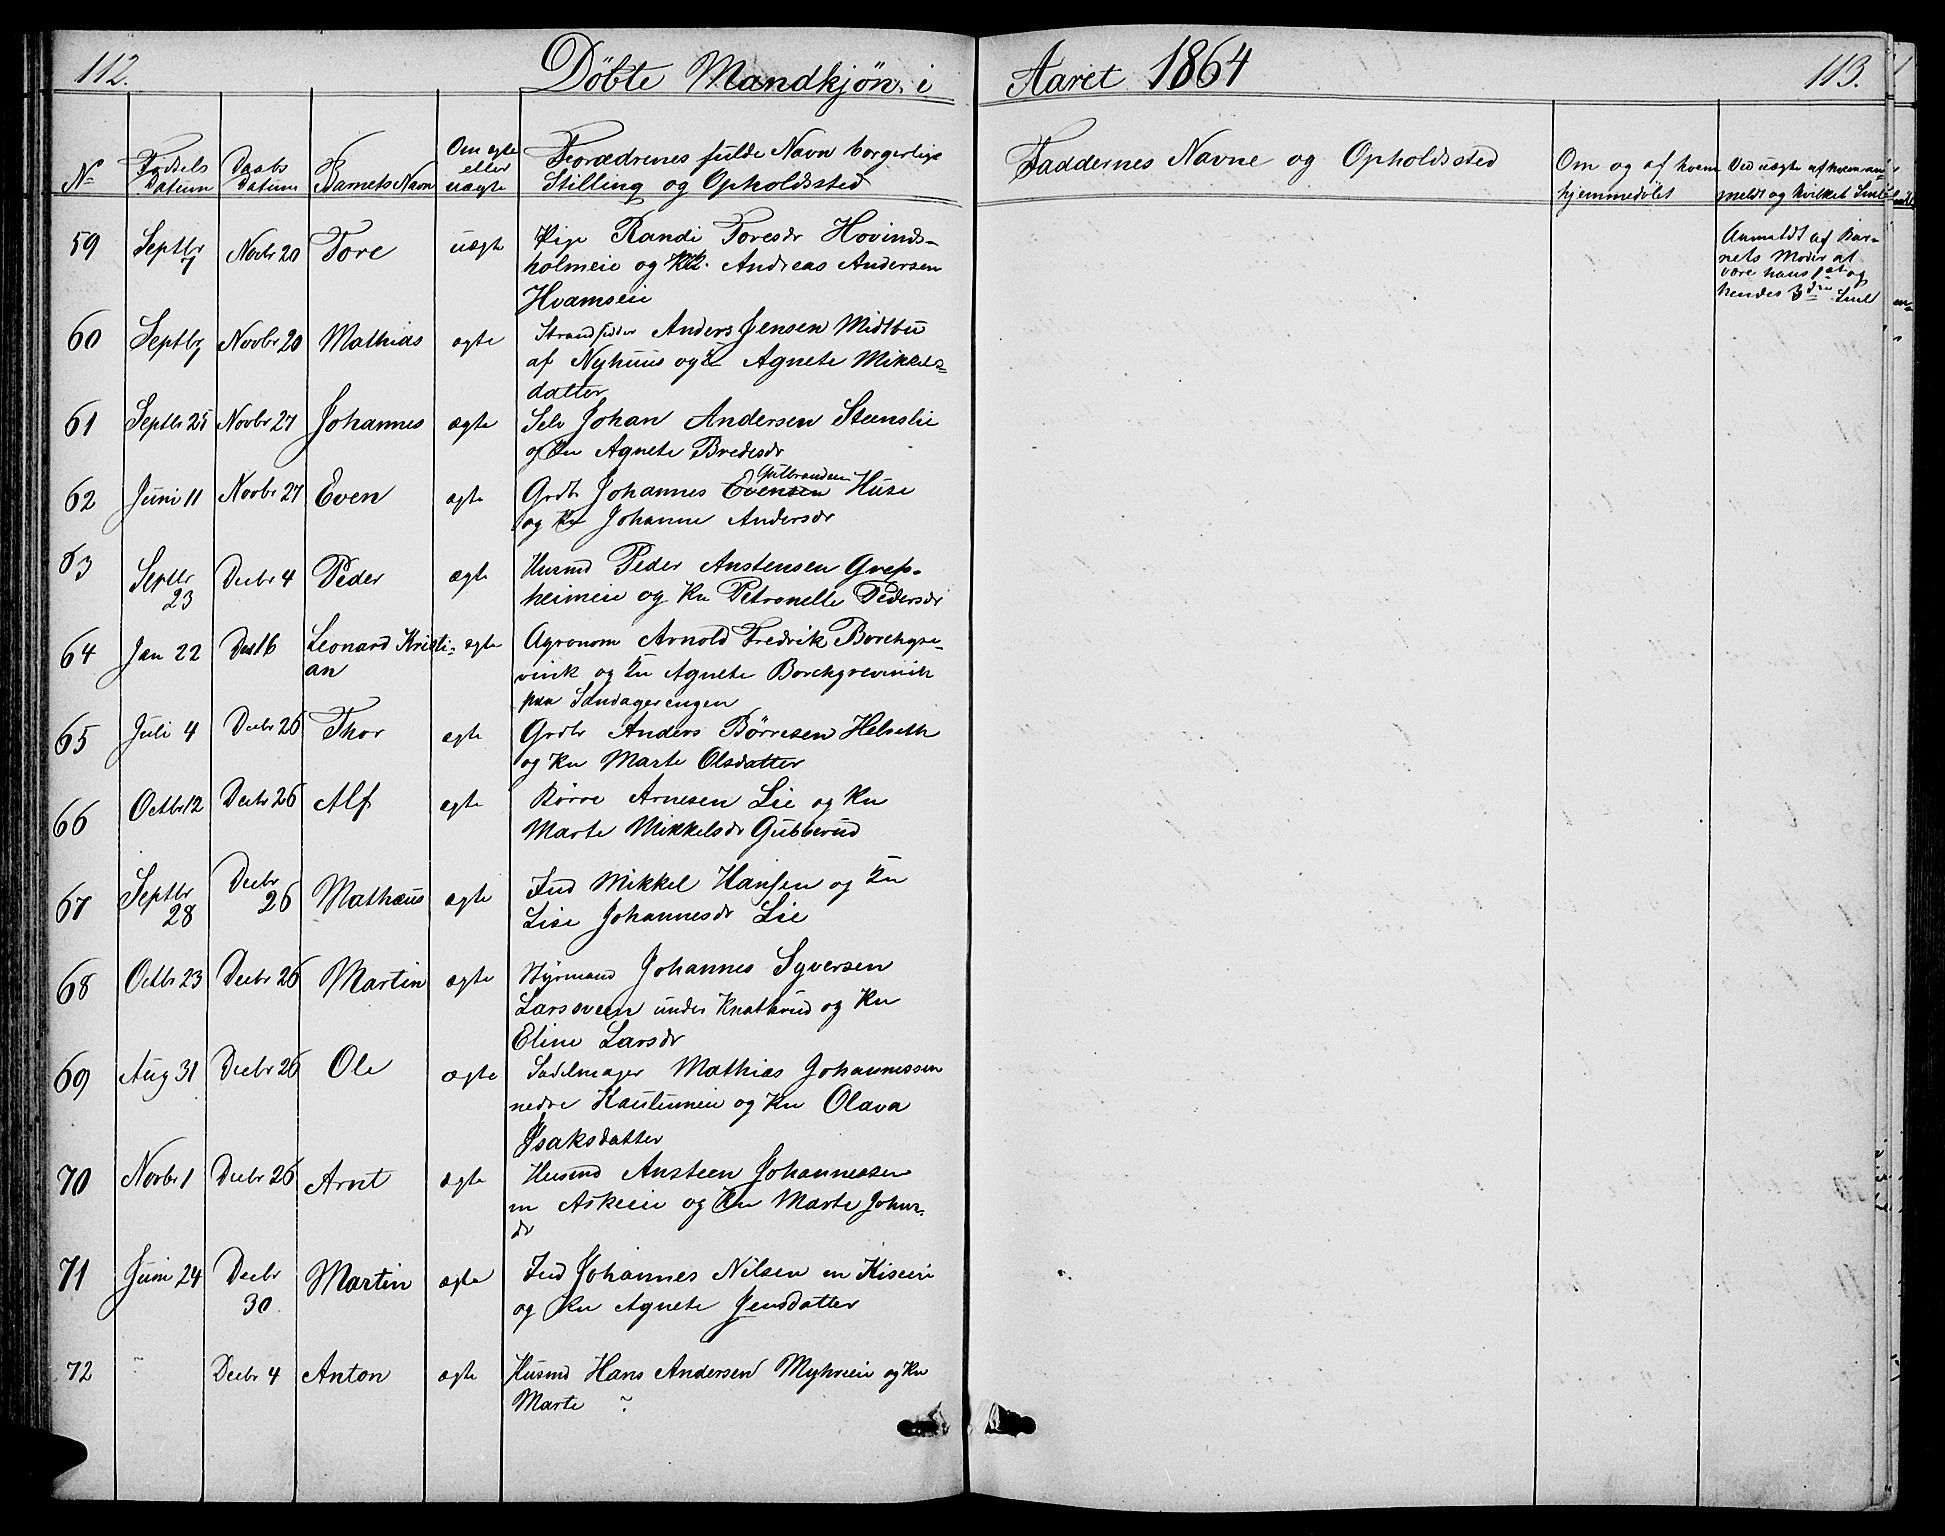 112.
Døbte Mandkjøn i
Aaret 1864
113.
No
Føddels Datum
Daabs Datum
Barnets Navn
Om ægte eller uægte
Forædrenes fulde Navn borgerlige
Stilling og Opholdssted
Faddernes Navne og Opholdssted
Om og af hvem
hjemmedøbt
Ved uægte af hvem an-
meldt og hvilket Leie
59 Septbr 7 Novbr 20 Tore uægte Pige Randi Toresdr Hovinds-
holmeie og Andreas Andersen
Hvamseie
Anmeldt af Bar-
nets Moder at
være hans 1st og
hendes 3die Leie
60 Septbr 7 Novbr 20 Mathias ægte Strandsidder Anders Jensen Midtbu
af Nyhuus og K Agnete Mikkels-
datter
61 Septbr 25 Novbr 27 Johannes ægte Selv Johan Andersen Steenslie
og Kn Agnete Bredesdr
62 Juni 11 Novbr 27 Even ægte Grdbr Johannes Evensen Gulbrandsen Huse
og Kn Johanne Andersdr
63 Septbr 23 Decbr 4 Peder ægte Husmd Peder Anstensen Grefs-
heimeie og Kn Petronelle Pedersdr
64 Jan 22 Dec 16 Leonard Kristi- ægte Agronom Arnold Fredrik Borchgre-
an vink og Kn Agnete Borchgrevinck
paa Sandagerengen
65 Juli 4 Decbr 26 Thor ægte Grdbr Anders Børresen Helseth
og Kn Marte Olsdatter
66 Octbr 12 Decbr 26 Alf ægte Børre Arnesen Lie og Kn
Marte Mikkelsdr Gubberud
67 Septbr 28 Decbr 26 Mathæus ægte Ind Mikkel Hansen og Kn
Lise Johannesdr Lie
68 Octbr 23 Decbr 26 Martin ægte Styrmand Johannes Syversen
Larsveen under Knatterud og Kn
Eline Larsdr
69 Aug 31 Decbr 26 Ole ægte Sadelmager Mathias Johannessen
nedre Kaulumeie og Kn Olava
Isaksdatter
70 Novbr 1 Decbr 26 Arnt ægte Husmd Ansteen Johannessen
m Askeeie og Kn Marte Johns-
dr
71 Juni 24 Decbr 30 Martin ægte Ind Johannes Nilsen m Kiseeie
og Kn Agnete Jensdatter
72 ~ Decbr 4 Anton ægte Husmd Hans Andersen Myhreie og Kn
Marte ~